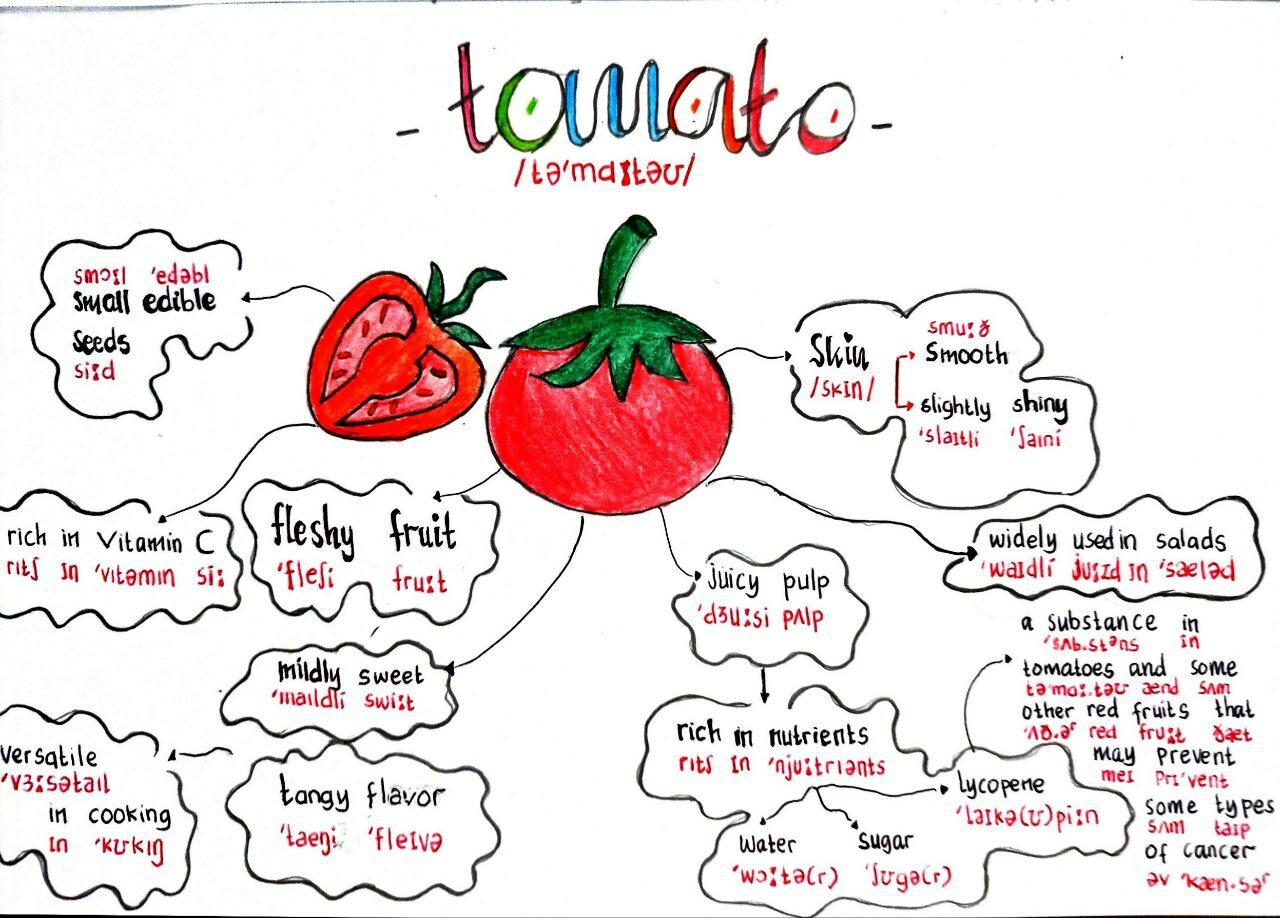 - tomato -
/tə'mɑːtəʊ/
smɔːl 'edəbl
small edible
seeds
siːd
Skin
/skɪn/
smuːð
smooth
slightly shiny
'slaɪtli 'ʃaɪni
rich in Vitamin C
rɪtʃ ɪn 'vɪtəmɪn siː
fleshy fruit
'fleʃi fruːt
juicy pulp
'dʒuːsi pʌlp
widely used in salads
'waɪdli juːzd ɪn 'sæləd
mildly sweet
'maɪldli swiːt
a substance in
'sʌb.stəns ɪn
tomatoes and some
tə'mɑː.təʊ ænd sʌm
other red fruits that
'ʌð.əʳ red fruːt ðæt
may prevent
meɪ prɪ'vent
some types
sʌm taɪp
of cancer
əv 'kæn.səʳ
rich in nutrients
rɪtʃ ɪn 'njuːtriənts
lycopene
'laɪkə(ʊ)piːn
water
'wɔːtə(r)
sugar
'ʃʊgə(r)
versatile
'vɜːsətaɪl
in cooking
ɪn 'kʊkɪŋ
tangy flavor
'tæŋi 'fleɪvə